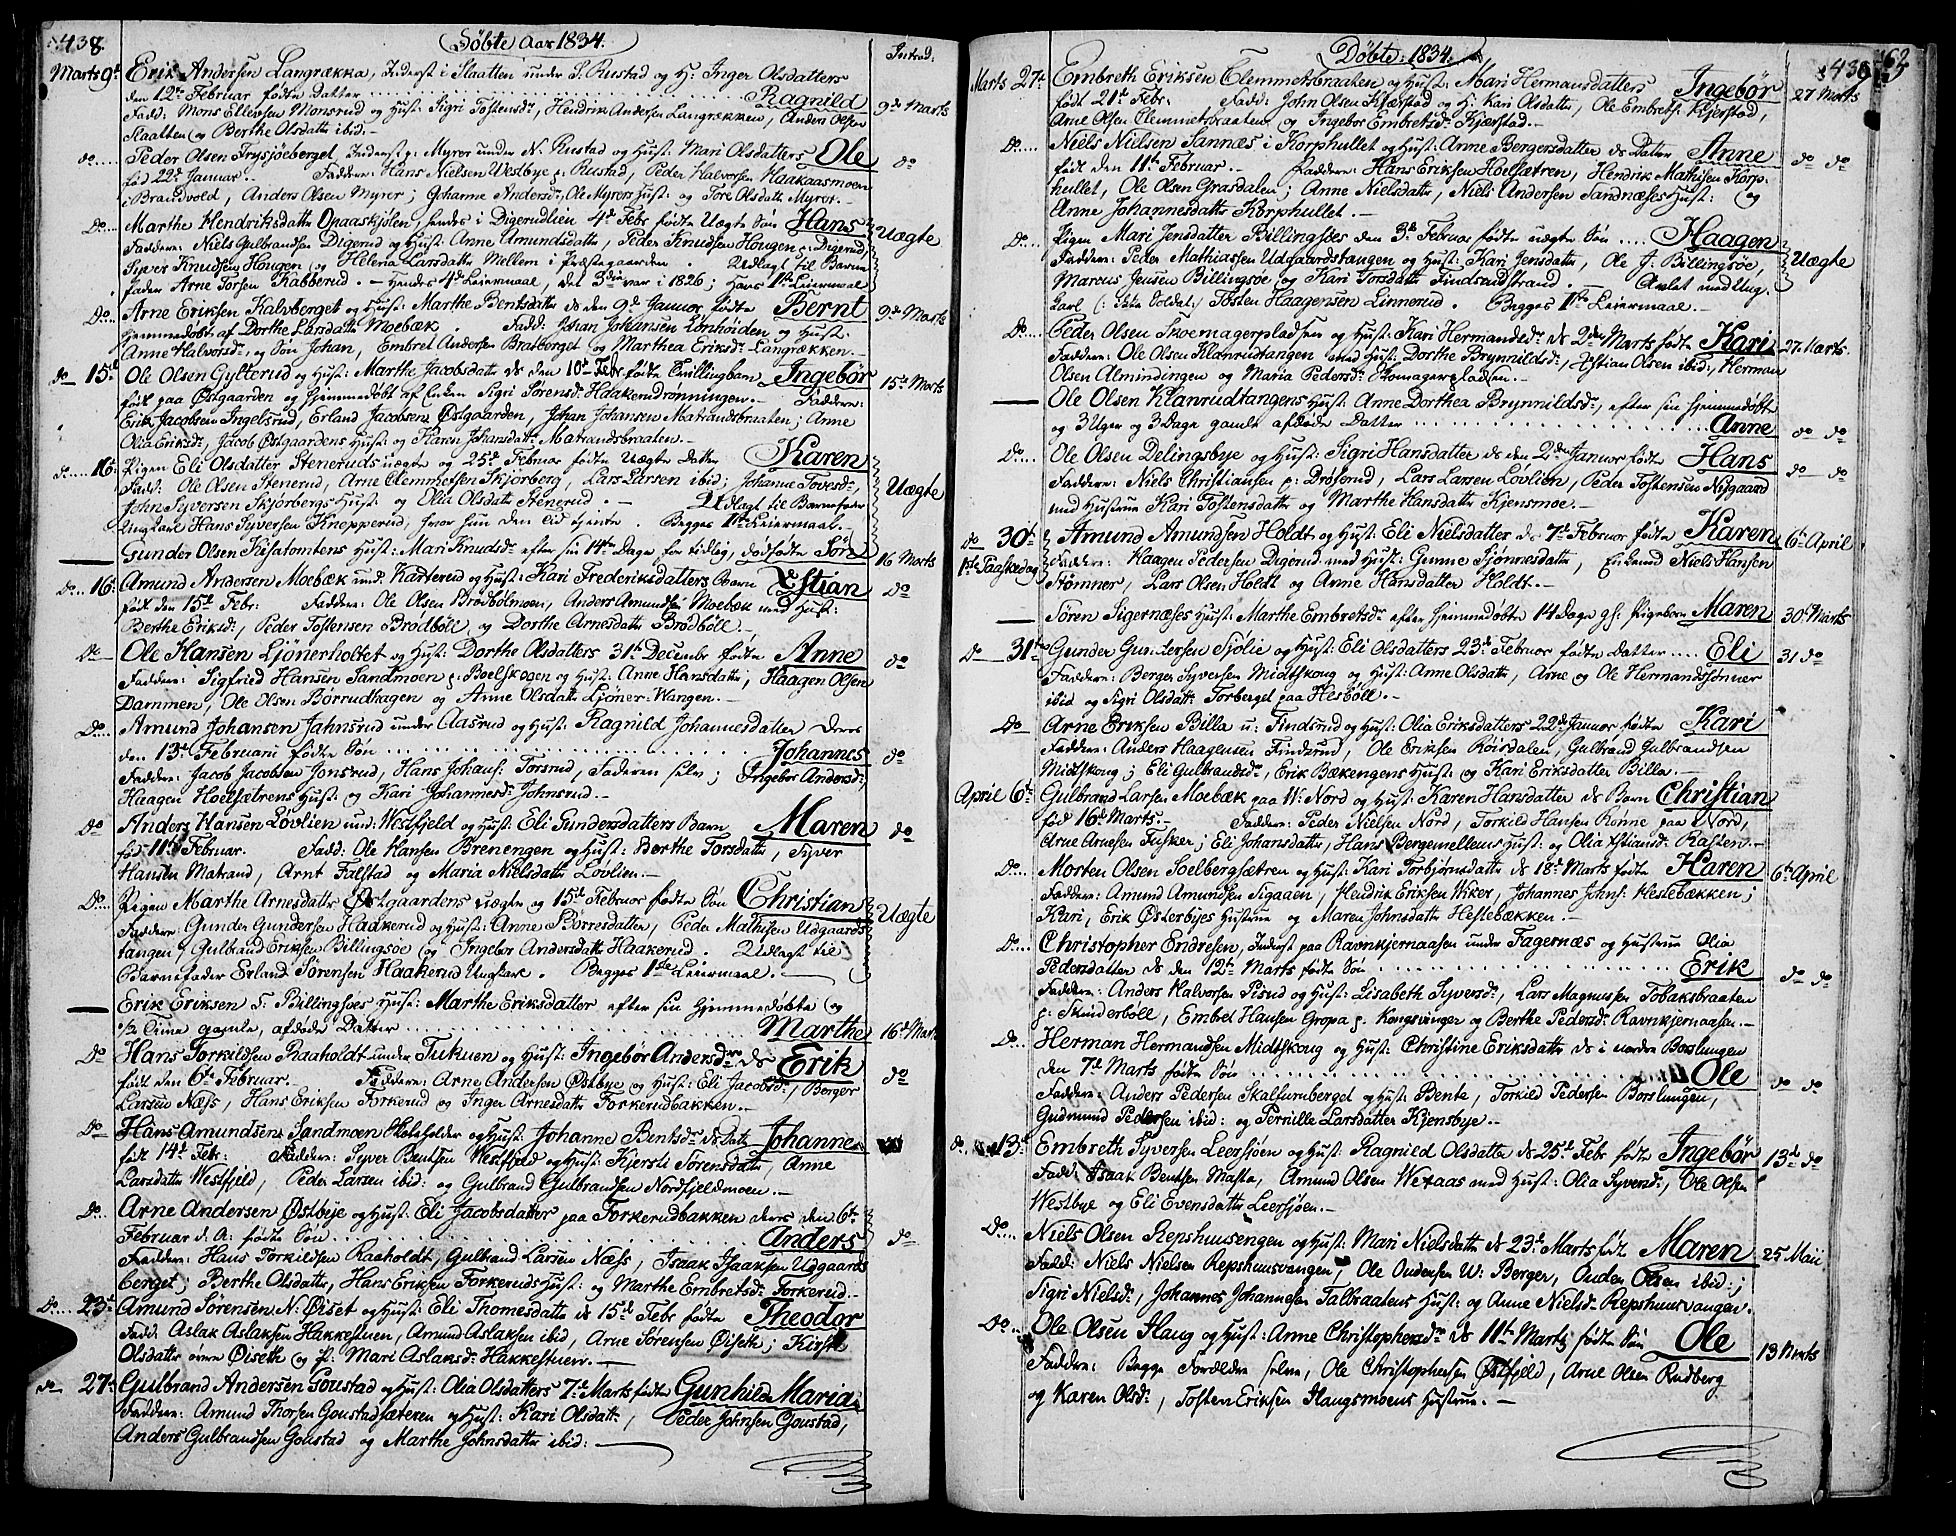 438.
Döbte Aar 1834.
Introd:
Marts 9d Erik Andersen Langrækka, Inderst i Slaatten under S. Rustad og H: Inger Olsdatters
den 12te Februar födte Datter ........ Ragnild 9de Marts
Fadd: Mons Ellevsen Monsrud og Hust: Sigri Tostensdr, Hendrik Andersen Langrækken, Anders Olsen
Slaatten og Berthe Olsdatter ibid:-
do.... Peder Olsen Trysjöeberget, Inderst p: Myrer under N. Rustad og Hust: Mari Olsdatters Ole do
föd 22d Januar. Faddere: Hans Nielsen Westbye p: Rustad, Peder Halvorsen Haakaasmoen
i Brandvold, Anders Olsen Myrer; Johanne Andersdr, Ole Myrers Hust: og Tore Olsdatter Myrer.-
Do... Marthe Hendriksdatter Opaaskjölen, hendes i Digerudlien 4d Febr födte Uægte Sön Hans Uægte
Faddere: Niels Gulbrandsen Digerud og Hust: Anne Amundsdatter, Peder Knudsen Hougen p: Digerud,
Syver Knudsen Hougen og Helena Larsdatter Mellem i Præstegaarden. Udlagt til Barne
fader Arne Torsen Kabberud. - Hendes 4d Leiermaal, det 3die var i 1826; Hans 1te Leiermaal
Do... Arne Eriksen Kalvberget og Hust: Marthe Bentsdatter ds den 9d Januar födte Bernt 9de Marts
Hjemmedöbt af Dorthe Larsdatter Moebæk. Fadd: Johan Johansen Lönhöiden og Hust:
Anne Halvorsdr, og Sön Johan, Embret Andersen Bratberget og Marthea Eriksdr Langrækken.-
do 15d Ole Olsen Gylterud og Hust: Marthe Jacobsdatter ds den 10d Febr födte Tvillingbarn Ingebör 15d Marts
födt paa Østgaarden og Hjemmedöbt af Enken Sigri Sörensdr Haakendrönningen. - Faddere:
Erik Jacobsen Ingelsrud, Erland Jacobsen Østgaarden, Johan Johansen Matrandsbraaten; Anne
Olia Eriksdr, Jacob Østgaardens Hust og Karen Johansdatter Matrandsbraaten.-
do... 16: Pigen Eli Olsdatter Steneruds uægte og 25d Februar födte Uægte Datter Karen Uægte
Fadd: Ole Olsen Stenerud, Arne Clemmetsen Skjörberg, Lars Larsen ibid; Johanne Tovesdr,
John Syversen Skjörbergs Hust: og Olia Olsdatter Stenerud. - Udlagt til Barnefader
Ungkarl Hans Syversen Knepperud, hvor hun den tid tjente. Begges 1te Leiermaal.-
Gunder Olsen Keisatomtens Hust: Mari Knudsdr efter sin 14ten Dage for tidlig, dödfödte Sön 16 Marts
do... 16: Amund Andersen Moebæk und: Karterud og Hust: Kari Frederiksdatters Barn Xstian do
födt den 15d Febr: Faddere: Ole Olsen Brödbölmoen, Anders Amundsen Moebæk med Hust:
Berthe Eriksdr, Peder Tostensen Brödböll og Dorthe Arnesdatter Brödböll.-
Do Ole Hansen Ljönerholtet og Hust: Dorthe Olsdatters 31te December födte Anne do
Faddere: Sigfried Hansen Sandmoen p: Boelskogen og Hust: Anne Hansdatter, Haagen Olsen
Dammen, Ole Olsen Börrudhagen og Anne Olsdatter Ljöner-Wangen.-
Do... Amund Johansen Jahnsrud under Aasrud og Hust: Ragnild Johannesdatter deres
den 13d Februarii födte Sön ........ Johannes do
Faddere: Jacob Jacobsen Jonsrud, Hans Johans: Torsrud, Faderen selv; Ingebor Andersdr,
Haagen Hoelsætrens Hust: og Kari Johannesdr Johnsrud.-
Do Anders Hansen Lövlien und: Westfjeld og Hust: Eli Gundersdatters Barn Maren do
föd 11te Februar. Fadd: Ole Hansen Brenengen og Hust: Berthe Torsdatter, Syver
Hansen Matrand, Arnt Falstad og Maria Nielsdatter Lövlien.-
Do... Pigen Marthe Arnesdatter Østgaardens uægte og 15d Februar födte Sön Christian Uægte
Faddere: Gunder Gundersen Haakerud og Hust: Anne Börresdatter, Peder Mathisen Udgaards
tangen, Gulbrand Eriksen Billingsöe og Ingebor Andersdatter Haakerud. - Udlagt til
Barnefader Erland Sörensen Haakerud Ungkarl. Begges 1ste Leiermaal.-
Erik Eriksen S. Billingsöes Hust: Marthe Eriksdatter efter sin Hjemmedöbte og
1/2 Time gamle, afdöde Datter ........ Marthe 16d Marts
Do Hans Torkildsen Raaholdt under Tukuen og Hust: Ingebör Andersdr ds Erik do
födt den 6te Februar. Faddere: Arne Andersen Østbye og Hust: Eli Jacobsdr, Berger
Larsen Næss, Hans Eriksen Forkerud og Inger Arnesdatter Forkerudbakken.-
Do Hans Amundsen Sandmoen Skoleholder og Hust: Johanne Bentsdr ds Datr Johanne
födt 14d Febr: Faddere: Syver Bentsen Westfjeld og Hust: Kjersti Sörensdatter, Anne
Larsdatter Westfjeld, Peder Larsen ibid: og Gulbrand Gulbrandsen Nordfjeldmoen.-
Do... Arne Andersen Østbye og Hust: Eli Jacobsdatter paa Forkerudbakken deres den 6te
Februar d. A: födte Sön ........ Anders do
Faddere: Hans Torkildsen Raaholdt, Gulbrand Larsen Næss, Isaak Isaaksen Udgaards
berget; Berthe Olsdatter, Hans Eriksen Forkeruds Hust: og Marthe Embretsdr Forkerud.-
do... 23d Amund Sörensen N. Øiset og Hust: Eli Thomesdatter ds 15d Febr födte Theodor
Fadd: Aslak Aslaksen Hakkestuen, Amund Aslaksen ibid, Arne Sörensen Øiseth; Kirsti
Olsdatter övre Øiseth og P: Mari Aslaksdr Hakkestuen.-
do 27: Gulbrand Andersen Goustad og Hust: Olia Olsdatters 7d Marts födte Gunhild Maria
Faddere: Amund Thorsen Goustadsæteren og Hust: Kari Olsdatter, Peder Johnsen Goustad,
Anders Gulbrandsen Goustad og Marthe Johnsdatter ibid:-
Döbte: 1834.
Marts 27d Embreth Eriksen Clemmetsbraaten og Hust: Mari Hermansdatters Ingebör 27 Marts
födt 21d Febr. Fadd: John Olsen Kjærstad og H: Kari Olsdatter, Ole Embrets: Kjærstad,
Arne Olsen Clemmetsbraaten og Ingebor Embretsdr Kjærstad.-
Do... Niels Nielsen Sannæs i Korphullet og Hust: Anne Bergersdatter ds Datter Anne do do
födt den 11te Februar. Faddere: Hans Eriksen Hoelsætren, Hendrik Mathisen Korp-
hullet, Ole Olsen Grasdalen; Anne Nielsdatter, Niels Andersen Sandnæses Hust: og
Anne Johannesdatter Korphullet.-
Do... Pigen Mari Jensdatter Billingsöes den 3d Februar födte uægte Sön .... Haagen Uægte
Faddere: Peder Mathiassen Udgaardstangen og Hust: Kari Jensdatter, Ole J: Billingsöe,
Marcus Jensen Billingsöe og Kari Torsdatter Findsrudstrand. Avlet med Ung-
karl (: ikke Soldat:) Tosten Haagensen Linnerud. Begges 1te Leiermaal.-
Do... Peder Olsen Skoemagerpladsen og Hust: Kari Hermansdr ds 2den Marts födte Kari 27 Marts.
Faddere: Ole Olsen Klanrudtangen med Hust: Dorthe Brynnildsdr, Xstian Olsen ibid:, Herman
Olsen Almindingen og Maria Pedersdr Skomagerpladsen.-
Ole Olsen Klanrudtangens Hust: Anne Dorthea Brynnildsdr, efter sin Hjemmedöbte
og 3 Uger og 3 Dage gamle afdöde Datter ........ Anne do do
Do... Ole Olsen Delingsbye og Hust: Sigri Hansdatter ds den 2den Januar födte Hans do do
Faddere: Niels Christiansen p: Dröserud, Lars Larsen Lövlien, Peder Tostensen Nysgaard
med Hustrue Kari Tostensdatter og Marthe Hansdatter Kjensmoe.-
do 30d Amund Amundsen Holdt og Hust: Eli Nielsdatter ds 7d Februar födte Karen 6te April
1ste Paaskedag Faddere: Haagen Pedersen Digerud med Hust: Gunne Sjönnesdatter, Enkemd Niels Hansen
Stömner, Lars Olsen Holdt og Anne Hansdatter Holdt.-
Sören Sigernæses Hust: Marthe Embretsdr efter Hjemmedöbte 14 Dage gl: Pigebarn Maren 30 Marts
Do 31te Gunder Gundersen Sjölie og Hust: Eli Olsdatters 23d Februar födte Datter .... Eli 31 do
Faddere: Berger Syversen Midtskoug og Hust: Anne Olsdatter, Arne og Ole Hermandssönner
ibid og Sigri Olsdatter Torberget paa Hesböll.-
Do Arne Eriksen Billa u: Findsrud og Hust: Olia Eriksdatters 22de Januar födte Kari
Faddere: Anders Haagensen Finderud, Ole Eriksen Röisdalen, Gulbrand Gulbrandsen
Midtskoug; Eli Gulbrandsdr, Erik Bækengens Hust: og Kari Eriksdatter Billa.-
April 6te Gulbrand Larsen Moebæk paa W: Nord og Hust: Karen Hansdatter ds Barn Christian
föd 16d Marts.- Faddere: Peder Nielsen Nord, Torkild Hansen Rönne paa Nord,
Arne Arnesen Fusker; Eli Johansdatter, Hans Bergemellens Hust: og Olia Xstiansdr Rasten.-
Do... Morten Olsen Soelbergsætren og Hust: Kari Torbjörnsdatter ds 18d Marts födte Karen 6te April
Faddere: Amund Amundsen Sigaaen, Hendrik Eriksen Wiker, Johannes Johns: Hestebækken;
Kari, Erik Østerbyes Hustrue og Maren Johnsdatter Hestebækken.-
Do... Christopher Endresen, Inderst paa Ravnkjernaasen under Fagernæs og Hustrue Olia
Pedersdatter ds den 12te Marts födte Sön ........ Erik do do
Faddere: Anders Halvorsen Sisud og Hust: Lisabeth Syversdr, Lars Magnussen Tobaksbraaten
p: Skinderböll, Embret Hansen Gropa p. Kongsvinger og Berthe Pedersdr Ravnkjernaasen.-
Do... Herman Hermandsen Midtskoug og Hust: Christine Eriksdatter ds i nordre Borslungen
den 7d Marts födte Sön ........ Ole do do
Faddere: Anders Pedersen Skalfurnberget og Hust: Bente, Torkild Pedersen Borslungen,
Gudmund Pedersen ibid: og Pernille Larsdatter Kjensbye.-
do... 13d Embreth Syversen Leersjöen og Hust: Ragnild Olsdatter ds 25d Febr födte Ingebör 13d do
Fadd: Isaac Bentsen Masta, Amund Olsen Wexaas med Hust: Olia Syversdr, Ole Olsen
Westbye og Eli Evensdatter Leersjöen.-
Do... Niels Olsen Repshuusengen og Hust: Mari Nielsdatter ds 23d Marts födt Maren 25 Maii
Fadd: Niels Nielsen Repshuusvangen, Ole Oudensen W: Berger, Ouden Olsen ibid:;
Sigri Nielsdr, Johannes Johannesen Talbraatens Hust: og Anne Nielsdr Repshuusvangen.
Do... Ole Olsen Haug og Hust: Anne Christophersdr ds 11te Marts födte Sön Ole 13
Faddere: Begge Forældre selve, Ole Christophersen Østfjeld, Arne Olsen Rudberg
og Karen Olsdr, Tosten Eriksen Haugsmoens Hustrue.-